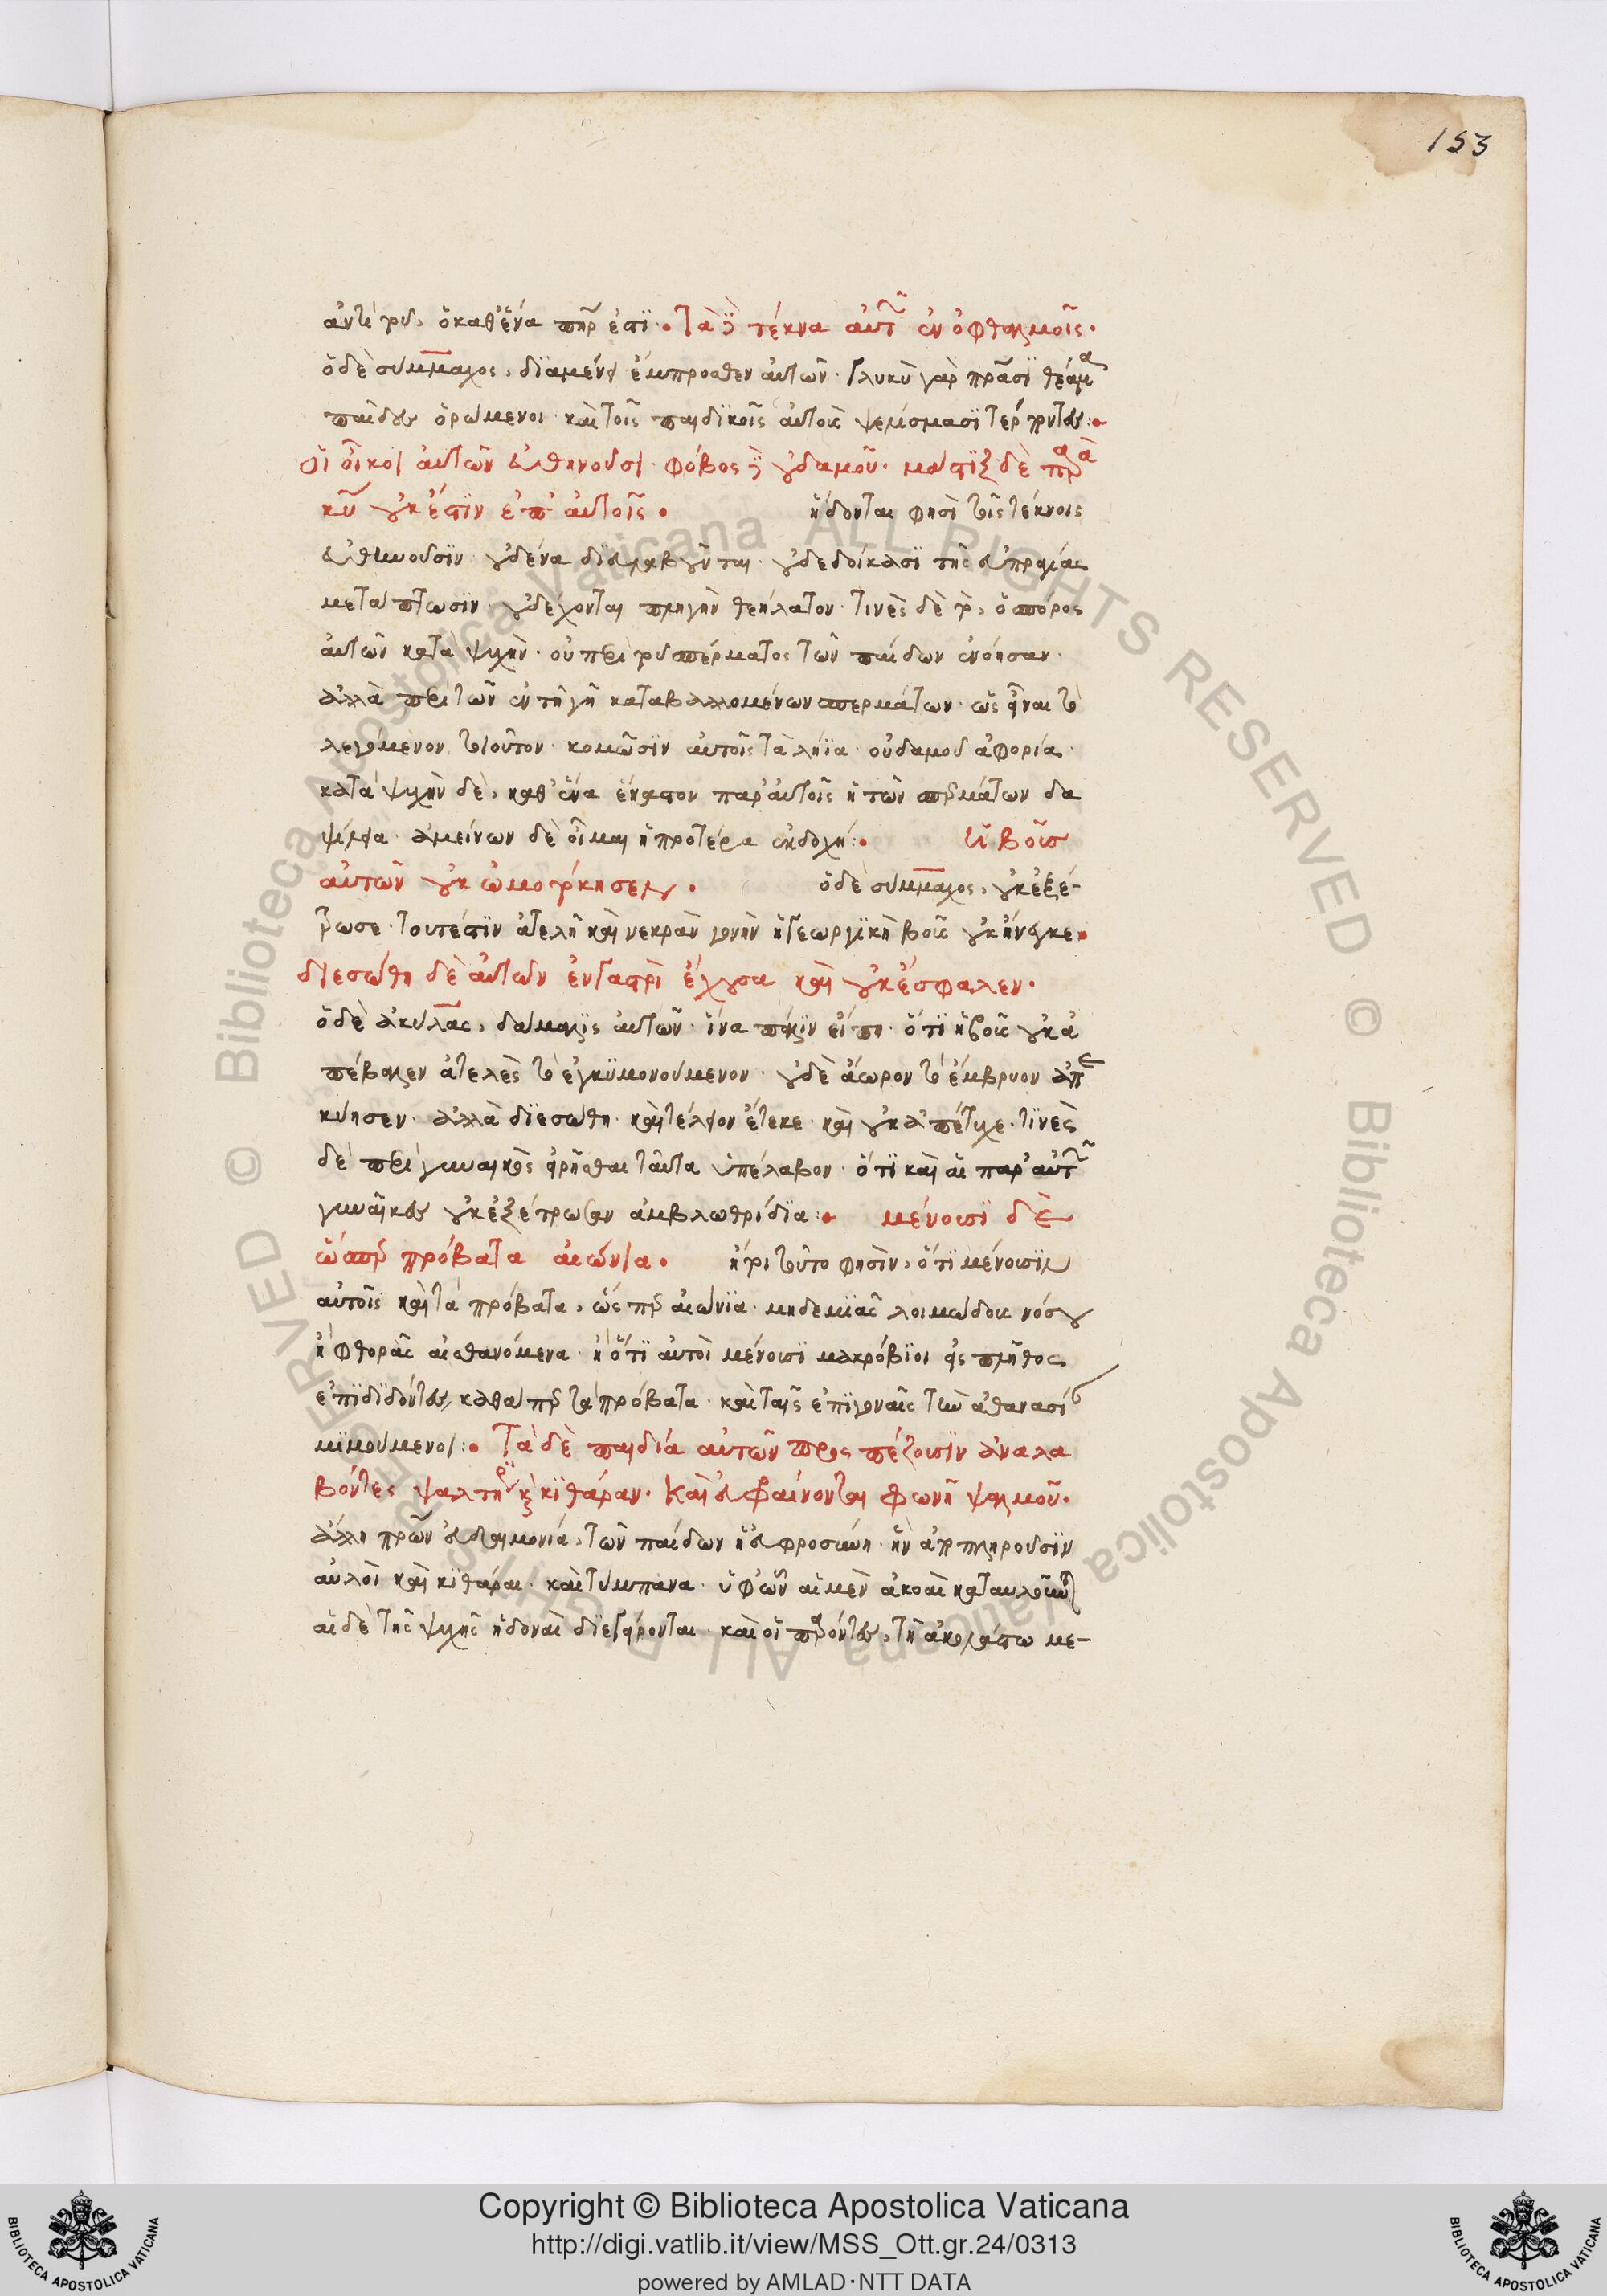 153
ἀντὶ τοῦ, ὁ καθ' ἕνα πατήρ ἐστι · Τὰ δὲ τέκνα αὐτῶν ἐν ὀφθαλμοῖς ·
ὁ δὲ σύμμαχος, διαμένει ἔμπροσθεν αὐτῶν · γλυκὺ γὰρ πατράσι θέαμα
παῖδες ὁρώμενοι · καὶ τοῖς παιδικοῖς αὐτοὺς ψελίσμασι τέρποντες :
Οἱ οἶκοι αὐτῶν εὐθηνοῦσι · φόβος δὲ οὐδαμοῦ · μάστιξ δὲ παρὰ
κυρίου οὐκ ἔστιν ἐπ' αὐτοῖς · ἥδονται φησὶ τοῖς τέκνοις
εὐθηνοῦσιν · οὐδένα διευλαβοῦνται · οὐ δεδοίκασι τῆς εὐπραγίας
μετάπτωσιν · οὐ δέχονται πληγὴν θεήλατον · τινὲς δὲ τὸ, ὁ σπόρος
αὐτῶν κατὰ ψυχὴν · οὐ περὶ τοῦ σπέρματος τῶν παίδων ἐνόησαν ·
ἀλλὰ περὶ τῶν ἐν τῇ γῇ καταβαλλομένων σπερμάτων · ὡς εἶναι τὸ
λεγόμενον τοιοῦτον · κομῶσιν αὐτοῖς τὰ λήϊα · οὐδαμοῦ ἀφορία ·
κατὰ ψυχὴν δὲ, καθ' ἕνα ἕκαστον παρ' αὐτοῖς ἡ τῶν σπερμάτων δα
ψίλεια · ἀμείνων δὲ οἶμαι ἡ προτέρα ἐκδοχή : Ἡ βοῦς
αὐτῶν οὐκ ὠμοτόκησεν · ὁ δὲ σύμμαχος, οὐκ ἐξέ-
τρωσε · τουτέστιν ἀτελῆ καὶ νεκρὰν γονὴν ἡ γεωργικὴ βοῦς οὐκ ἤνεγκε ·
διεσώθη δὲ αὐτῶν ἐν γαστρὶ ἔχουσα καὶ οὐκ ἔσφαλεν ·
ὁ δὲ ἀκύλας, δάμαλις αὐτῶν · ἵνα πάλιν εἴπῃ · ὅτι ἡ βοῦς οὐκ ἀ
πέβαλεν ἀτελὲς τὸ ἐγκυμονούμενον · οὐδὲ ἄωρον τὸ ἔμβρυον ἀπε
κύησεν · ἀλλὰ διεσώθη · καὶ τέλειον ἔτεκε · καὶ οὐκ ἀπέτυχε · τινὲς
δὲ περὶ γυναικὸς εἰρῆσθαι ταῦτα ὑπέλαβον · ὅτι καὶ αἱ παρ' αὐτῶν
γυναῖκες οὐκ ἐξέτρωσαν ἀμβλωθρίδια : μένουσι δὲ
ὥσπερ πρόβατα αἰώνια · ἤτοι τοῦτο φησὶν, ὅτι μένουσιν
αὐτοῖς καὶ τὰ πρόβατα, ὥσπερ αἰώνια · μηδεμιᾶς λοιμώδους νόσου
ἢ φθορᾶς αἰσθανόμενα · ἢ ὅτι αὐτοὶ μένουσι μακρόβιοι εἰς πλῆθος
ἐπιδιδόντες, καθάπερ τὰ πρόβατα · καὶ ταῖς ἐπιγοναῖς τὴν ἀθανασίαν
μιμούμενοι : Τὰ δὲ παιδία αὐτῶν προσπέζουσιν ἀναλα
βόντες ψαλτήριον καὶ κιθάραν · Καὶ εὐφραίνονται φωνῇ ψαλμοῦ ·
ἄλλη πατέρων εὐδαιμονία, τῶν παίδων ἡ εὐφροσύνη · ἣν ἀποπληροῦσιν
αὐλοὶ καὶ κιθάραι · καὶ τύμπανα · ὑφ' ὧν αἱ μὲν ἀκοαὶ καταυλοῦνται
αἱ δὲ τῆς ψυχῆς ἡδοναὶ διεγείρονται · καὶ οἱ παρόντες, τῇ ἀκολάστῳ με-
Copyright © Biblioteca Apostolica Vaticana
http://digi.vatlib.it/view/MSS_Ott.gr.24/0313
powered by AMLAD·NTT DATA
BIBLIOTECA APOSTOLICA VATICANA
BIBLIOTECA APOSTOLICA VATICANA
© Biblioteca Apostolica Vaticana ALL RIGHTS RESERVED
© Biblioteca Apostolica Vaticana ALL RIGHTS RESERVED